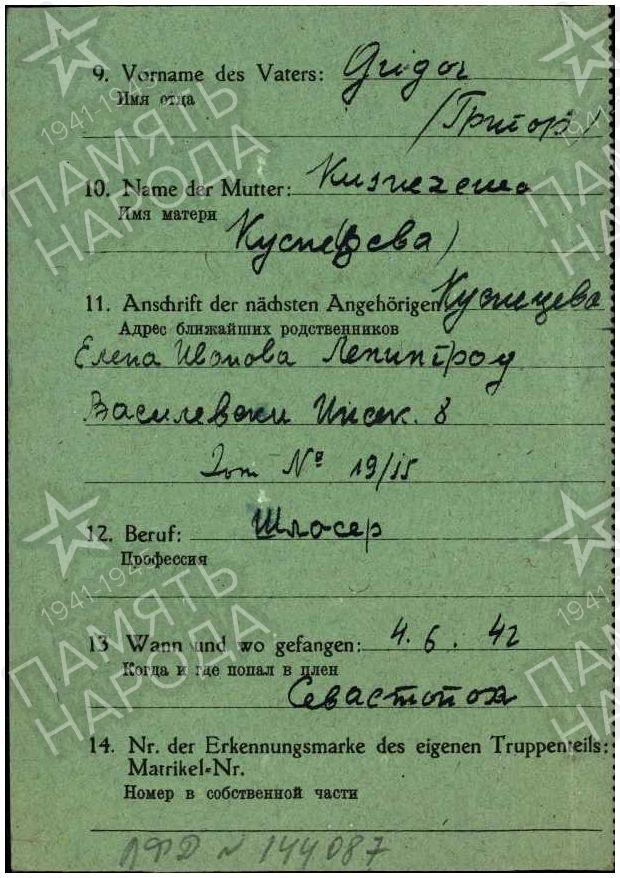 9. Vorname des Vaters: Grigor
Имя отца
(Григор)
10. Name der Mutter: Кизнехена
Имя матери
Куснецева)
11. Anschrift der nächsten Angehörigen Кузнецева
Адрес ближайших родственников
Елена Иванова Ленинград
Василевски Инсек. 8
№ 19/55
12. Beruf: Шлосер
Профессия
13 Wann und wo gefangen: 4. 6. 42
Когда и где попал в плен
Севастопол
14. Nr. der Erkennungsmarke des eigenen Truppenteils:
Matrikel-Nr.
Номер в собственной части
ЛФД № 144087
1941-1945
ПАМЯТЬ
НАРОДА